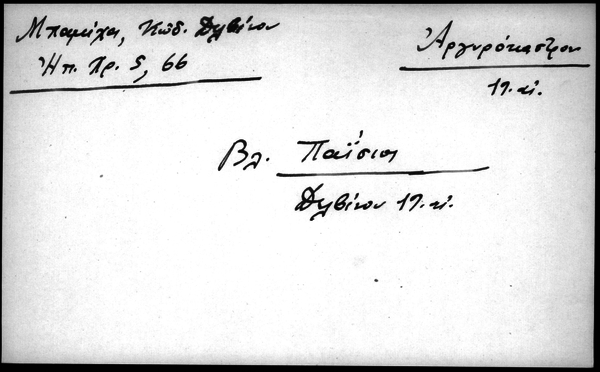 Μπαμίχα, Κώδ. Δελβίνου
Ἠπ. Χρ. 5, 66
Ἀργυρόκαστρον
17. αἰ.
Βλ. Παΐσιος
Δελβίνου 17. αἰ.